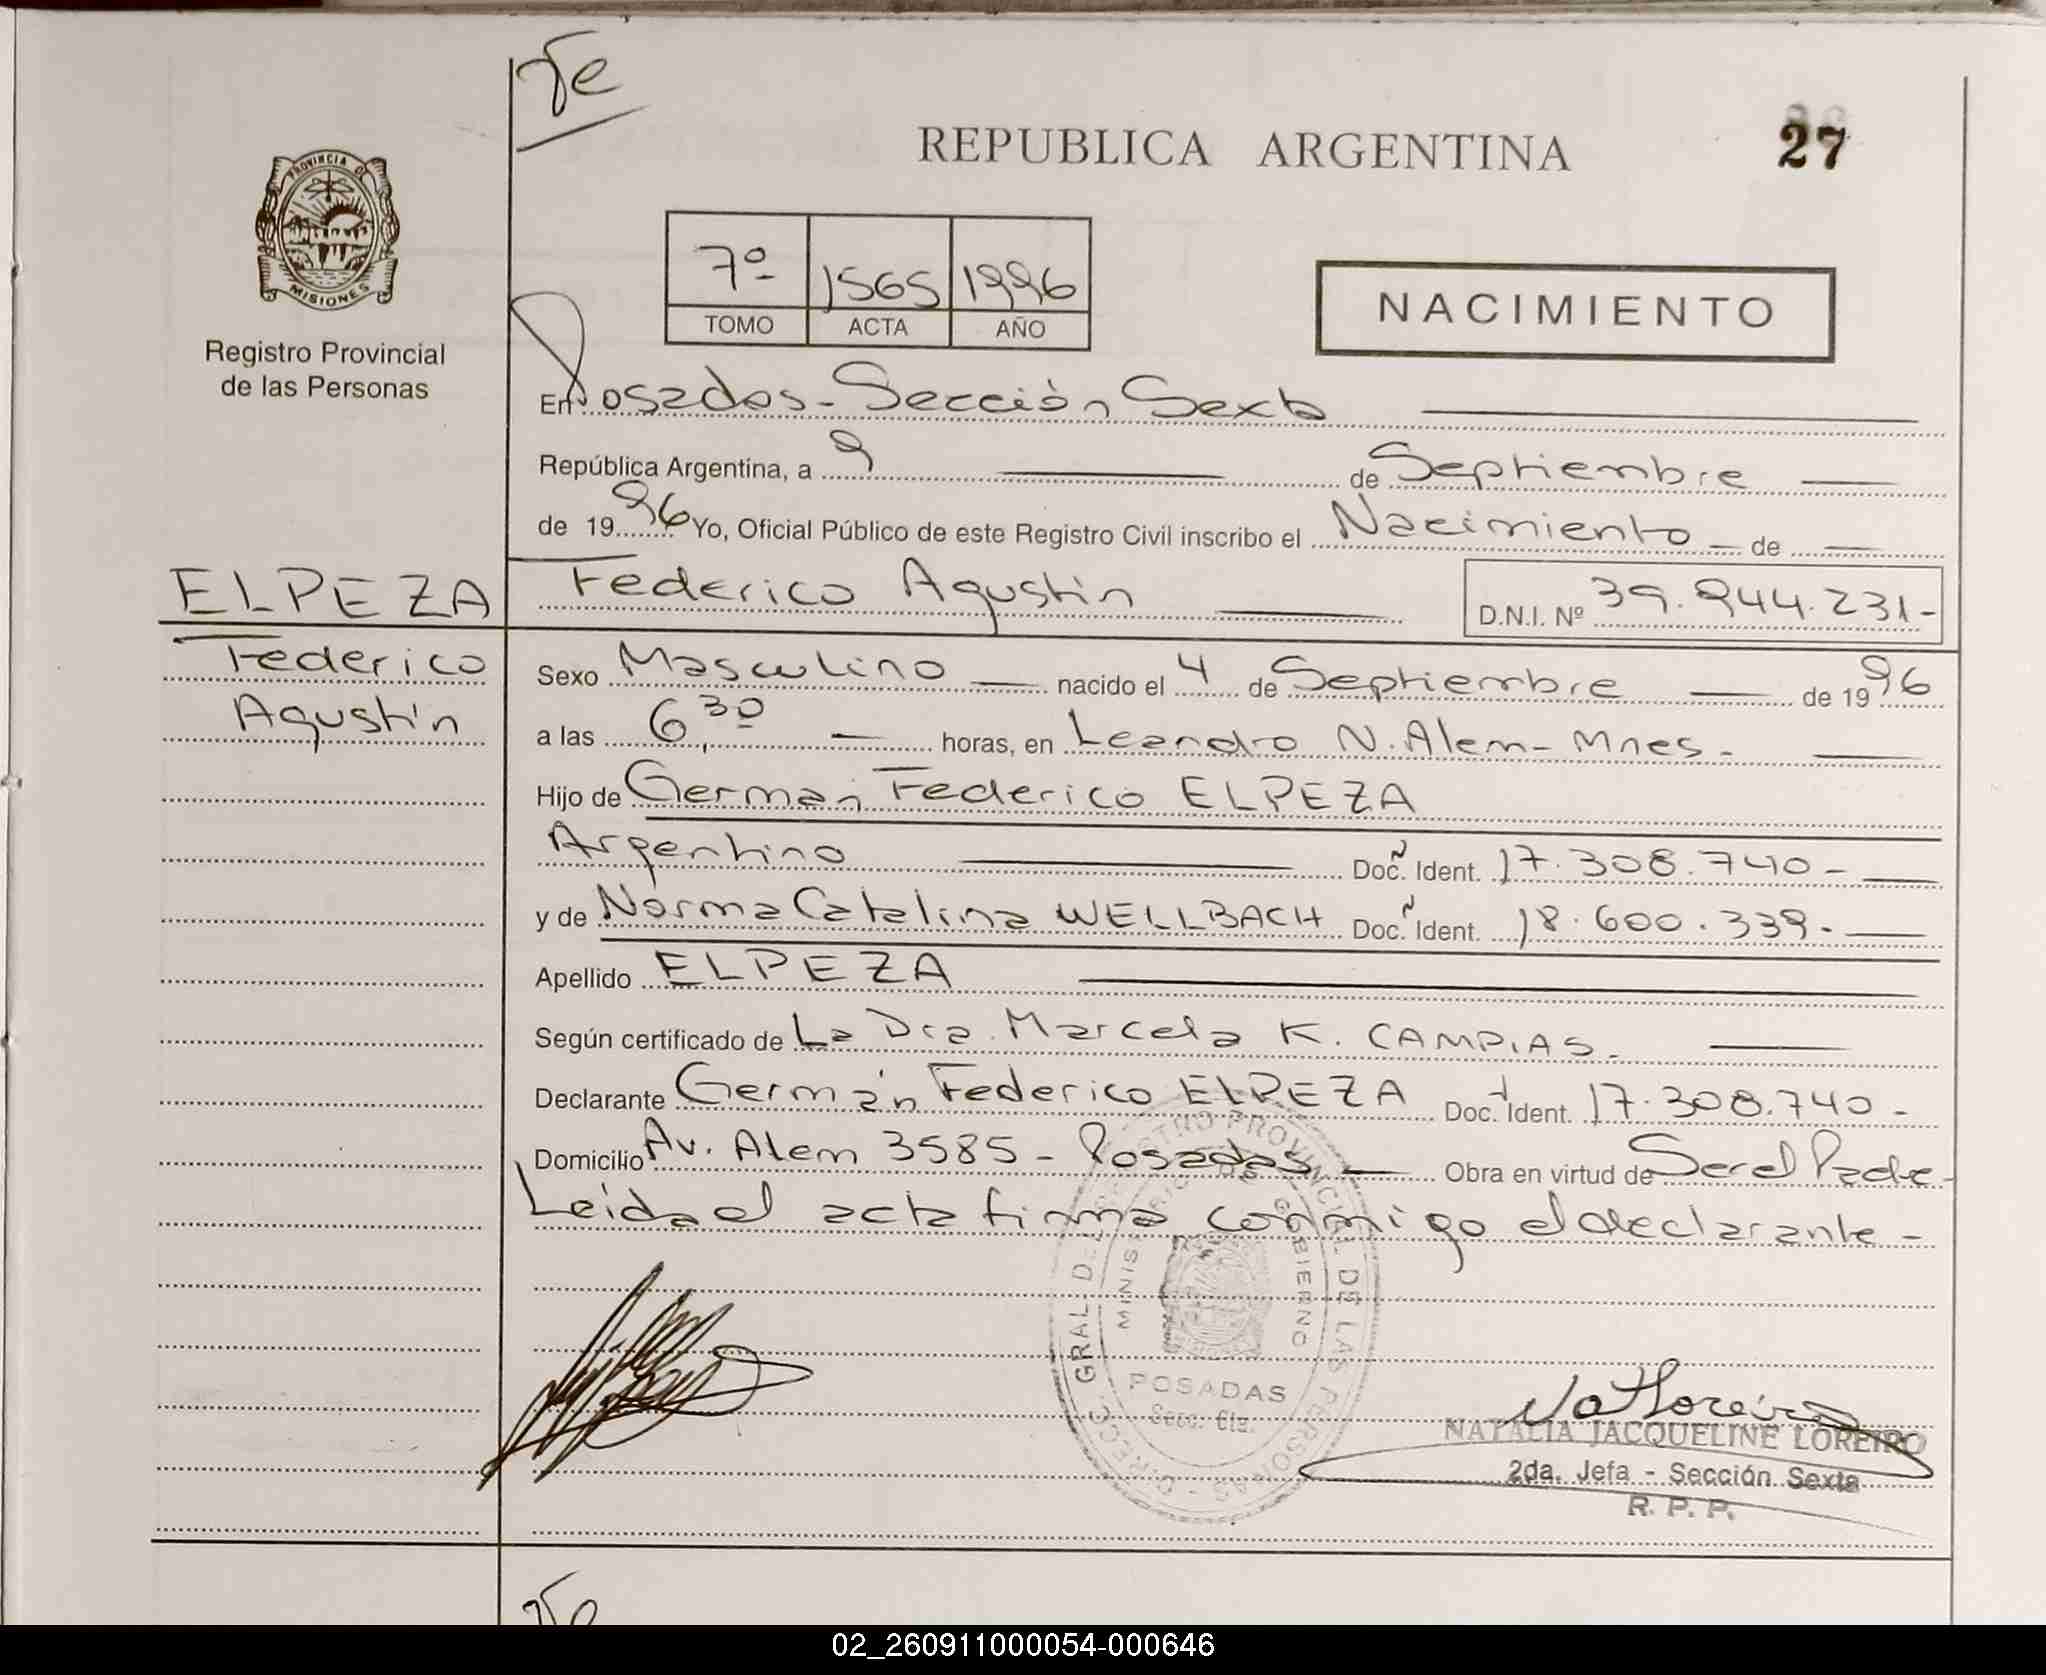 Te
REPUBLICA ARGENTINA
27
PROVINCIA DE
MISIONES
Registro Provincial
de las Personas
7º 1565 1996
TOMO ACTA AÑO
NACIMIENTO
En Posadas - Sección Sexta
República Argentina, a 9 de Septiembre
de 1996 Yo, Oficial Público de este Registro Civil inscribo el Nacimiento de
ELPEZA Federico Agustín D.N.I. Nº 39.944.231-
Federico
Agustín
Sexo Masculino nacido el 4 de Septiembre de 1996
a las 6,30 horas, en Leandro N. Alem - Mnes -
Hijo de Germán Federico ELPEZA
Argentino Doc. Ident. 17.308.740-
y de Norma Catalina WELLBACH Doc. Ident. 18.600.339-
Apellido ELPEZA
Según certificado de La Dra. Marcela K. CAMPIAS -
Declarante Germán Federico ELPEZA Doc. Ident. 17.308.740-
Domicilio Av. Alem 3585 - Posadas Obra en virtud de Ser el Padre -
Leída el acta firma conmigo el declarante -
DIRECC. GRAL. DEL REGISTRO PROVINCIAL DE LAS PERSONAS
MINISTERIO DE GOBIERNO
POSADAS
Secc. 6ta.
NATALIA JACQUELINE LOREIRO
2da. Jefa - Sección Sexta
R. P. P.
02_260911000054-000646